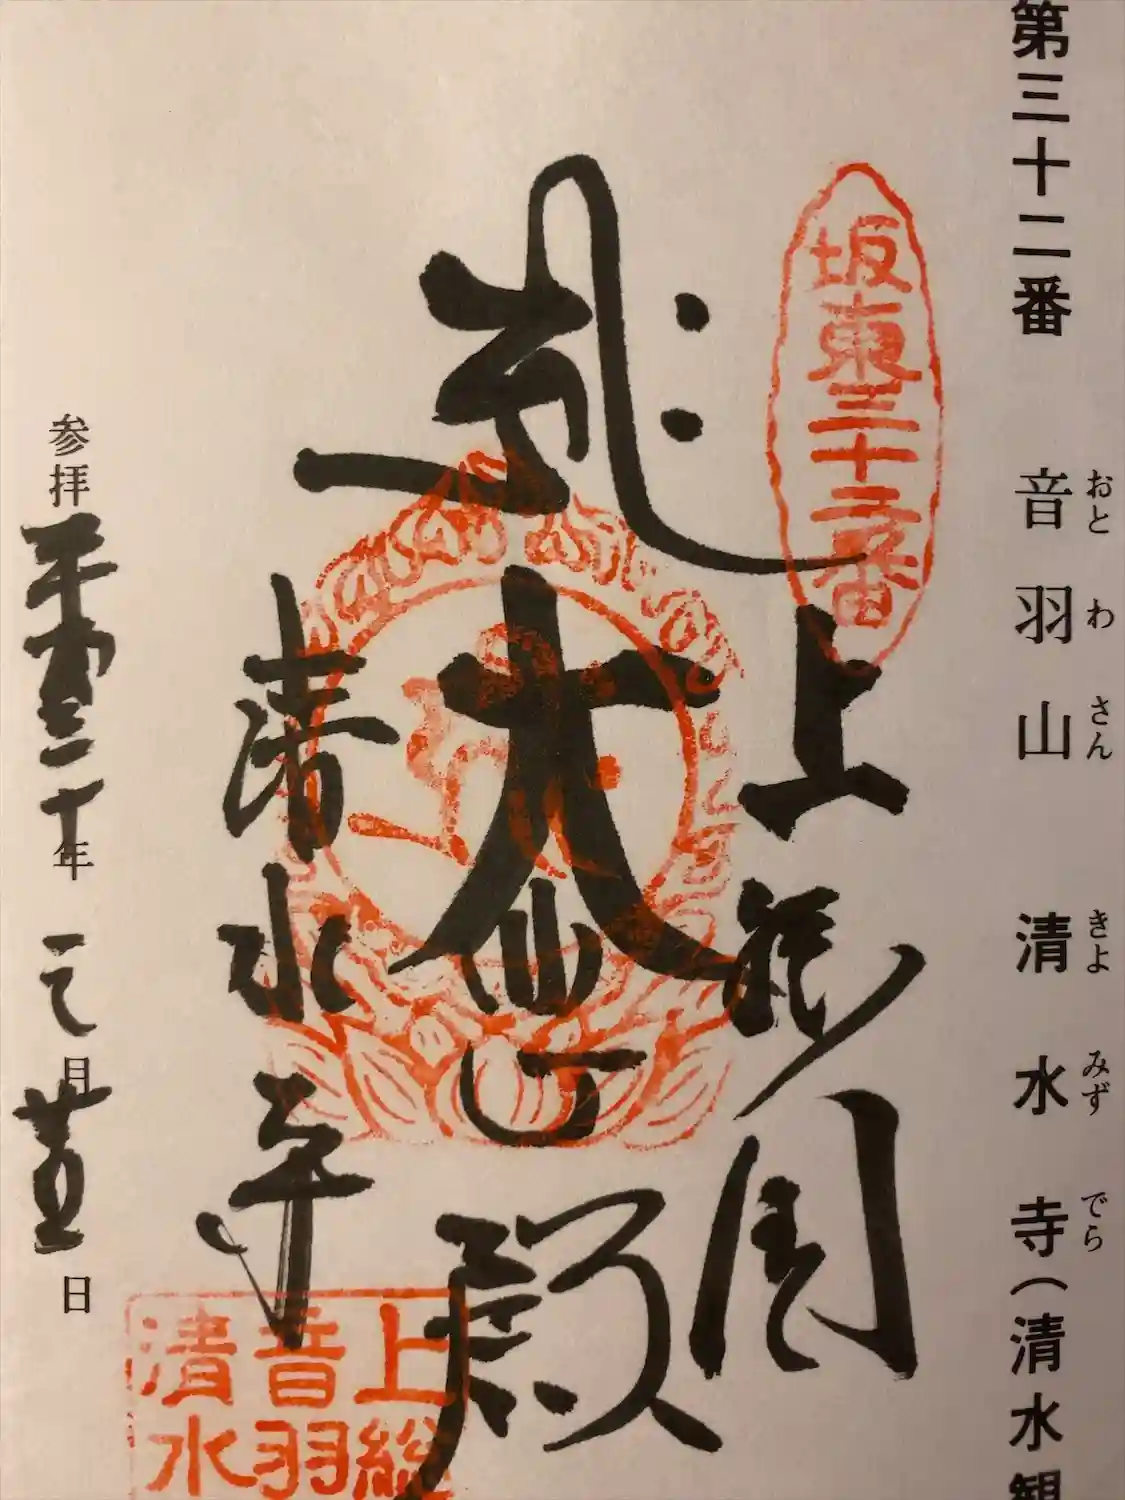 第三十二番 音羽山 清水寺(清水観
おと わ さん きよ みず でら
坂東三十二番
上総国
大悲殿
清水寺
上総
音羽
清水
参拝平成三十年一二月廿五日